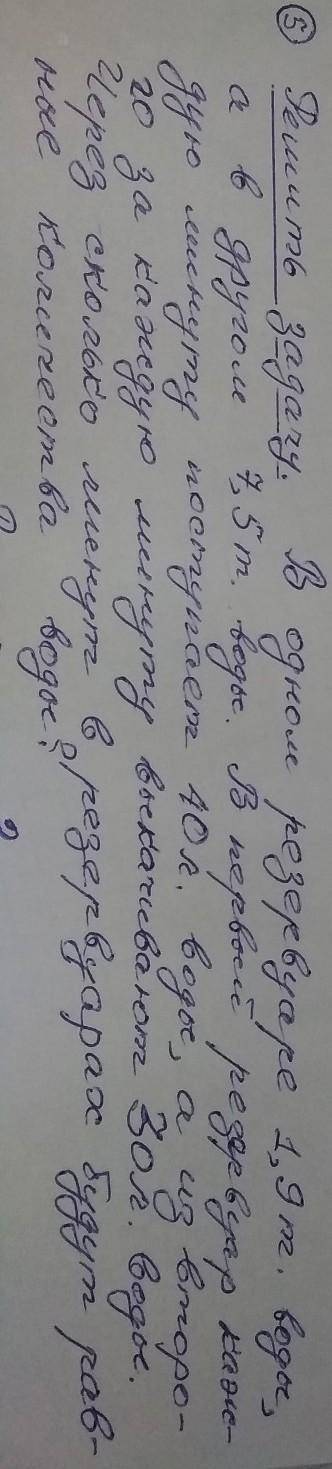 ⑤ Решить задачу. В одном резервуаре 1,9т. воды,
а в другом 7,5т. воды. В первый резервуар каж-
дую минуту поступает 40л. воды, а из второ-
го за каждую минуту выкачивают 30л. воды.
Через сколько минут в резервуарах будут рав-
ные количества воды?